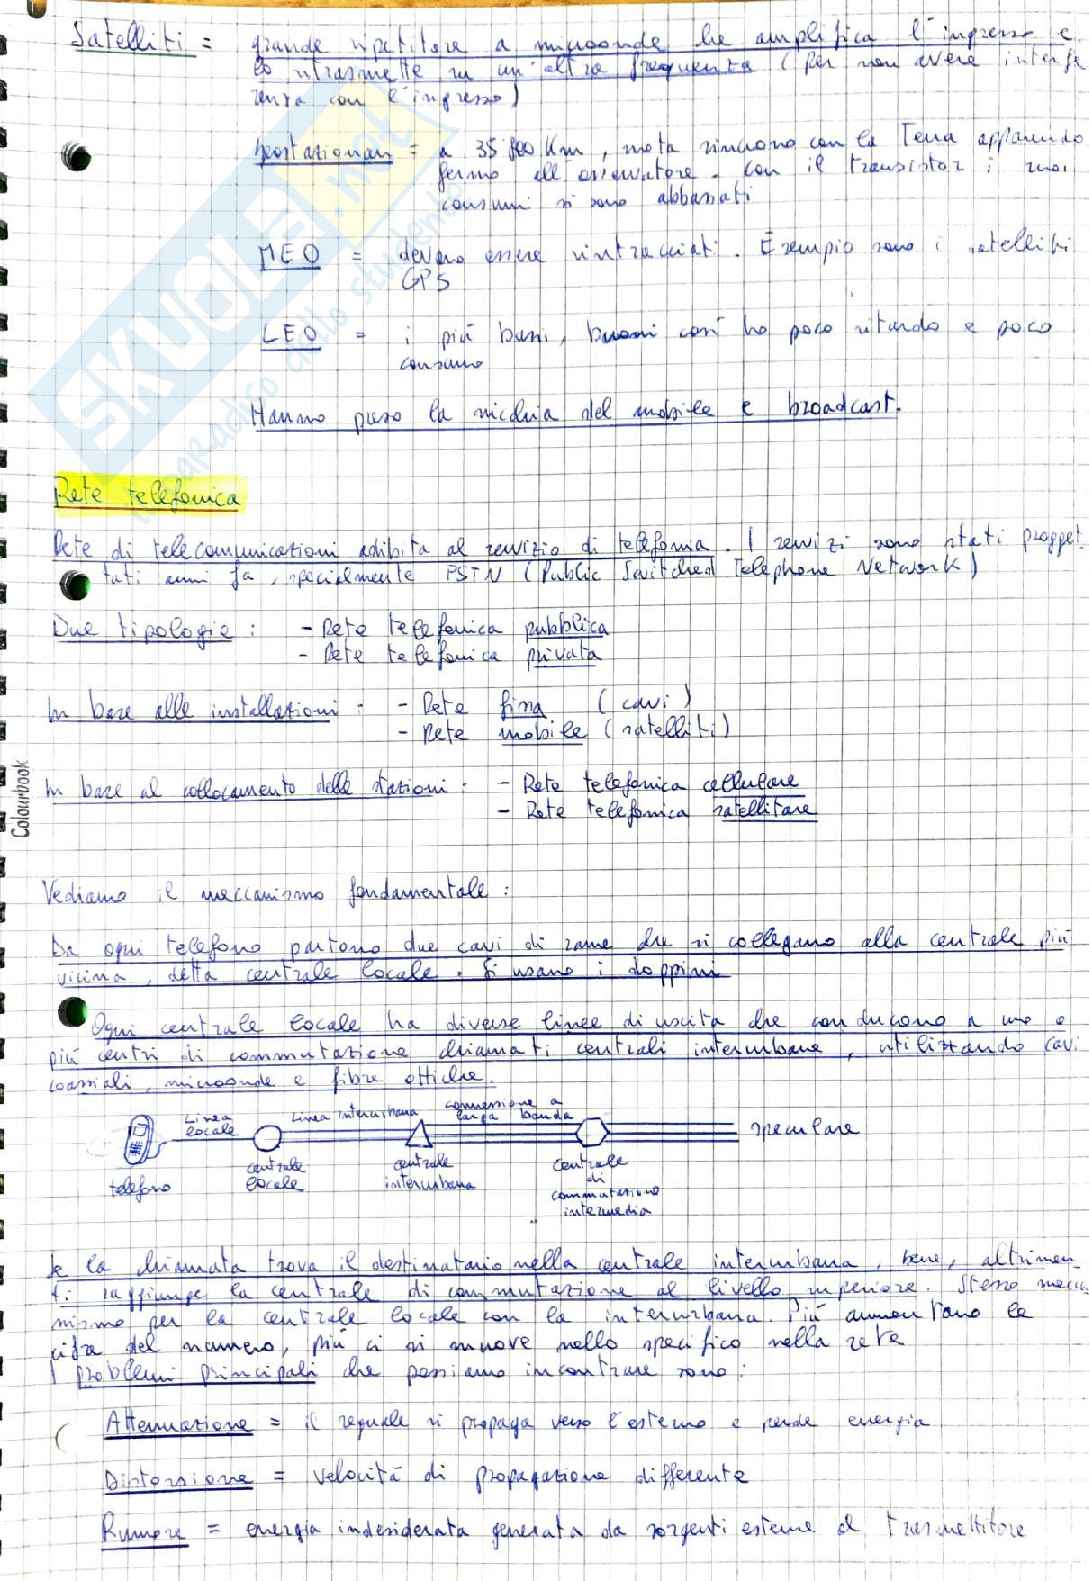 Satelliti = grande ripetitore a microonde che amplifica l'ingresso e
lo ritrasmette su un'altra frequenza (per non avere interfe
renza con l'ingresso)
Geostazionari = a 35 800 Km, moto sincrono con la Terra apparendo
fermo all'osservatore. Con il transistor i suoi
consumi si sono abbassati
MEO = devono essere rintracciati. Esempio sono i satelliti
GPS
LEO = i più bassi, buoni così ho poco ritardo e poco
consumo
Hanno preso la nicchia del mobile e broadcast.
Rete telefonica
Rete di telecomunicazioni adibita al servizio di telefonia. I servizi sono stati progget
tati anni fa, specialmente PSTN (Public Switched Telephone Network)
Due tipologie: - Rete telefonica pubblica
- Rete telefonica privata
In base alle installazioni: - Rete fissa (cavi)
- Rete mobile (satelliti)
Colourbook
In base al collocamento delle stazioni: - Rete telefonica cellulare
- Rete telefonica satellitare
Vediamo il meccanismo fondamentale:
Da ogni telefono partono due cavi di rame che si collegano alla centrale più
vicina, detta centrale locale. Si usano i doppini
Ogni centrale locale ha diverse linee di uscita che conducono a uno o
più centri di commutazione chiamati centrali interurbane, utilizzando cavi
coassiali, microonde e fibre ottiche.
Linea locale
Linea interurbana
connessione a larga banda
speculare
telefono
centrale locale
centrale interurbana
centrale di commutazione intermedia
Se la chiamata trova il destinatario nella centrale interurbana, bene, altrimen
ti raggiunge la centrale di commutazione al livello superiore. Stesso mecca
nismo per la centrale locale con la interurbana. Più aumentano le
cifre del numero, più ci si muove nello specifico nella rete
I problemi principali che possiamo incontrare sono:
Attenuazione = il segnale si propaga verso l'esterno e perde energia
Distorsione = velocità di propagazione differente
Rumore = energia indesiderata generata da sorgenti esterne al trasmettitore
SKUOLA.net
il paradiso dello studente